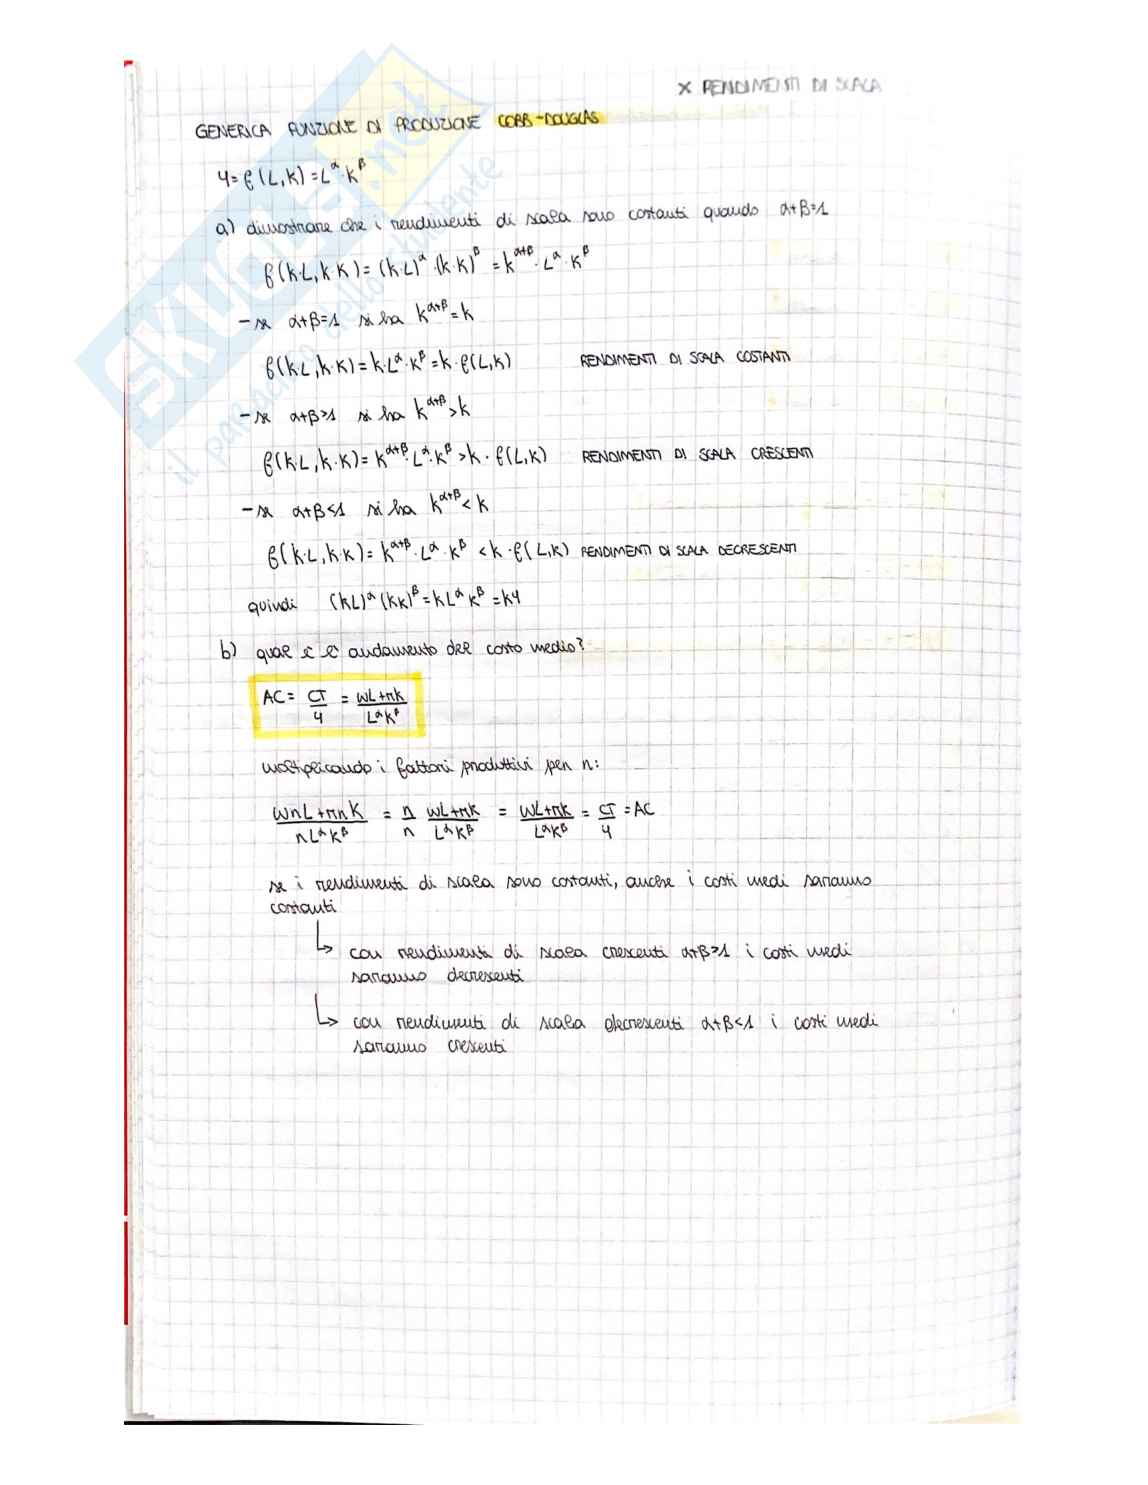 × RENDIMENTI DI SCALA
GENERICA FUNZIONE DI PRODUZIONE COBB-DOUGLAS
Y= f(L,K) = L^α · K^β
a) dimostrare che i rendimenti di scala sono costanti quando α+β=1
f(k·L, k·K) = (k·L)^α · (k·K)^β = k^(α+β) · L^α · K^β
- se α+β=1 si ha k^(α+β) = k
f(k·L, k·K) = k·L^α·K^β = k·f(L,K) RENDIMENTI DI SCALA COSTANTI
- se α+β>1 si ha k^(α+β) > k
f(k·L, k·K) = k^(α+β)·L^α·K^β > k · f(L,K) RENDIMENTI DI SCALA CRESCENTI
- se α+β<1 si ha k^(α+β) < k
f(k·L, k·K) = k^(α+β) · L^α · K^β < k · f(L,K) RENDIMENTI DI SCALA DECRESCENTI
quindi (kL)^α (kK)^β = kL^α K^β = kY
b) qual è l'andamento del costo medio?
AC = CT/Y = (wL+rK)/(L^α K^β)
moltiplicando i fattori produttivi per n:
(wnL+rnK)/(nL^α K^β) = n/n (wL+rK)/(L^α K^β) = (wL+rK)/(L^α K^β) = CT/Y = AC
se i rendimenti di scala sono costanti, anche i costi medi saranno
costanti
↳ con rendimenti di scala crescenti α+β>1 i costi medi
saranno decrescenti
↳ con rendimenti di scala decrescenti α+β<1 i costi medi
saranno crescenti
SKUOLA.net
il paradiso dello studente